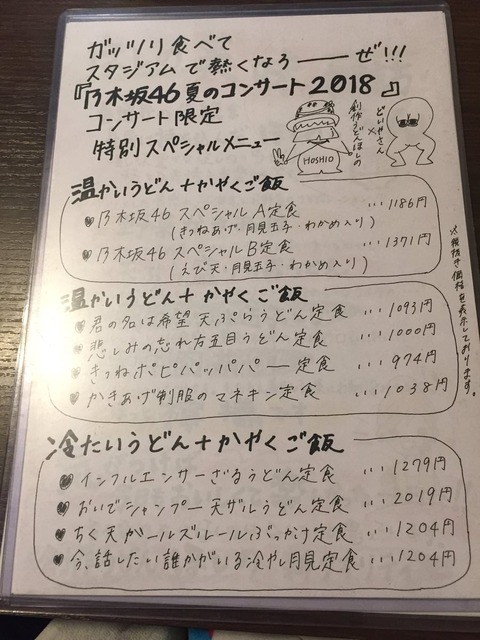 ガッツリ食べて
スタジアムで熱くなろーぜ!!!
『乃木坂46夏のコンサート2018』
コンサート限定
特別スペシャルメニュー
創作うどんほしの
×
どいやさん
HOSHIO
温かいうどん+かやくご飯
乃木坂46スペシャルA定食 …1186円
(きつねあげ・月見玉子・わかめ入り)
乃木坂46スペシャルB定食 …1371円
(えび天・月見玉子・わかめ入り)
※税抜き価格を表示しております。
温かいうどん+かやくご飯
君の名は希望天ぷらうどん定食 …1093円
悲しみの忘れ方五目うどん定食 …1000円
きつねポピパッパパー定食 …974円
かきあげ制服のマネキン定食 …1038円
冷たいうどん+かやくご飯
インフルエンサーざるうどん定食 …1279円
おいでシャンプー天ザルうどん定食 …2019円
ちく天ガールズルールぶっかけ定食 …1204円
今、話したい誰かがいる冷やし月見定食 …1204円